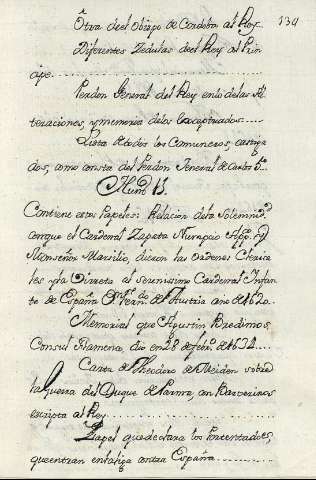 Otra del Obispo de Cordoba al Rey.
134
Diferentes Zedulas del Rey al Prin-
cipe.
Perdon General del Rey en lo de las Al-
teraciones, y memoria de los exceptuados.
Lista de todos los Comuneros, castiga-
dos, como consta del Perdon General de Carlos 5º.
Num 13.
Contiene estos Papeles: Relacion de la Solemnid.
con que el Cardenal Zapata Nuncio App. y
Monseñor Marsilio, dieron las Ordenes Clerica-
les y la Birreta al serenissimo Cardenal Infan-
te de España Dn. Fern.do de Austria año de 1620.
Memorial que Agustin Bredimos,
Consul Flamenco, dio en 28 de febr.o de 1634.
Carta de Theodoro de Meiden sobre
la guerra del Duque de Parma, con Barverinos
escripta al Rey
Papel que declara los Potentados,
que entran en la liga contra España